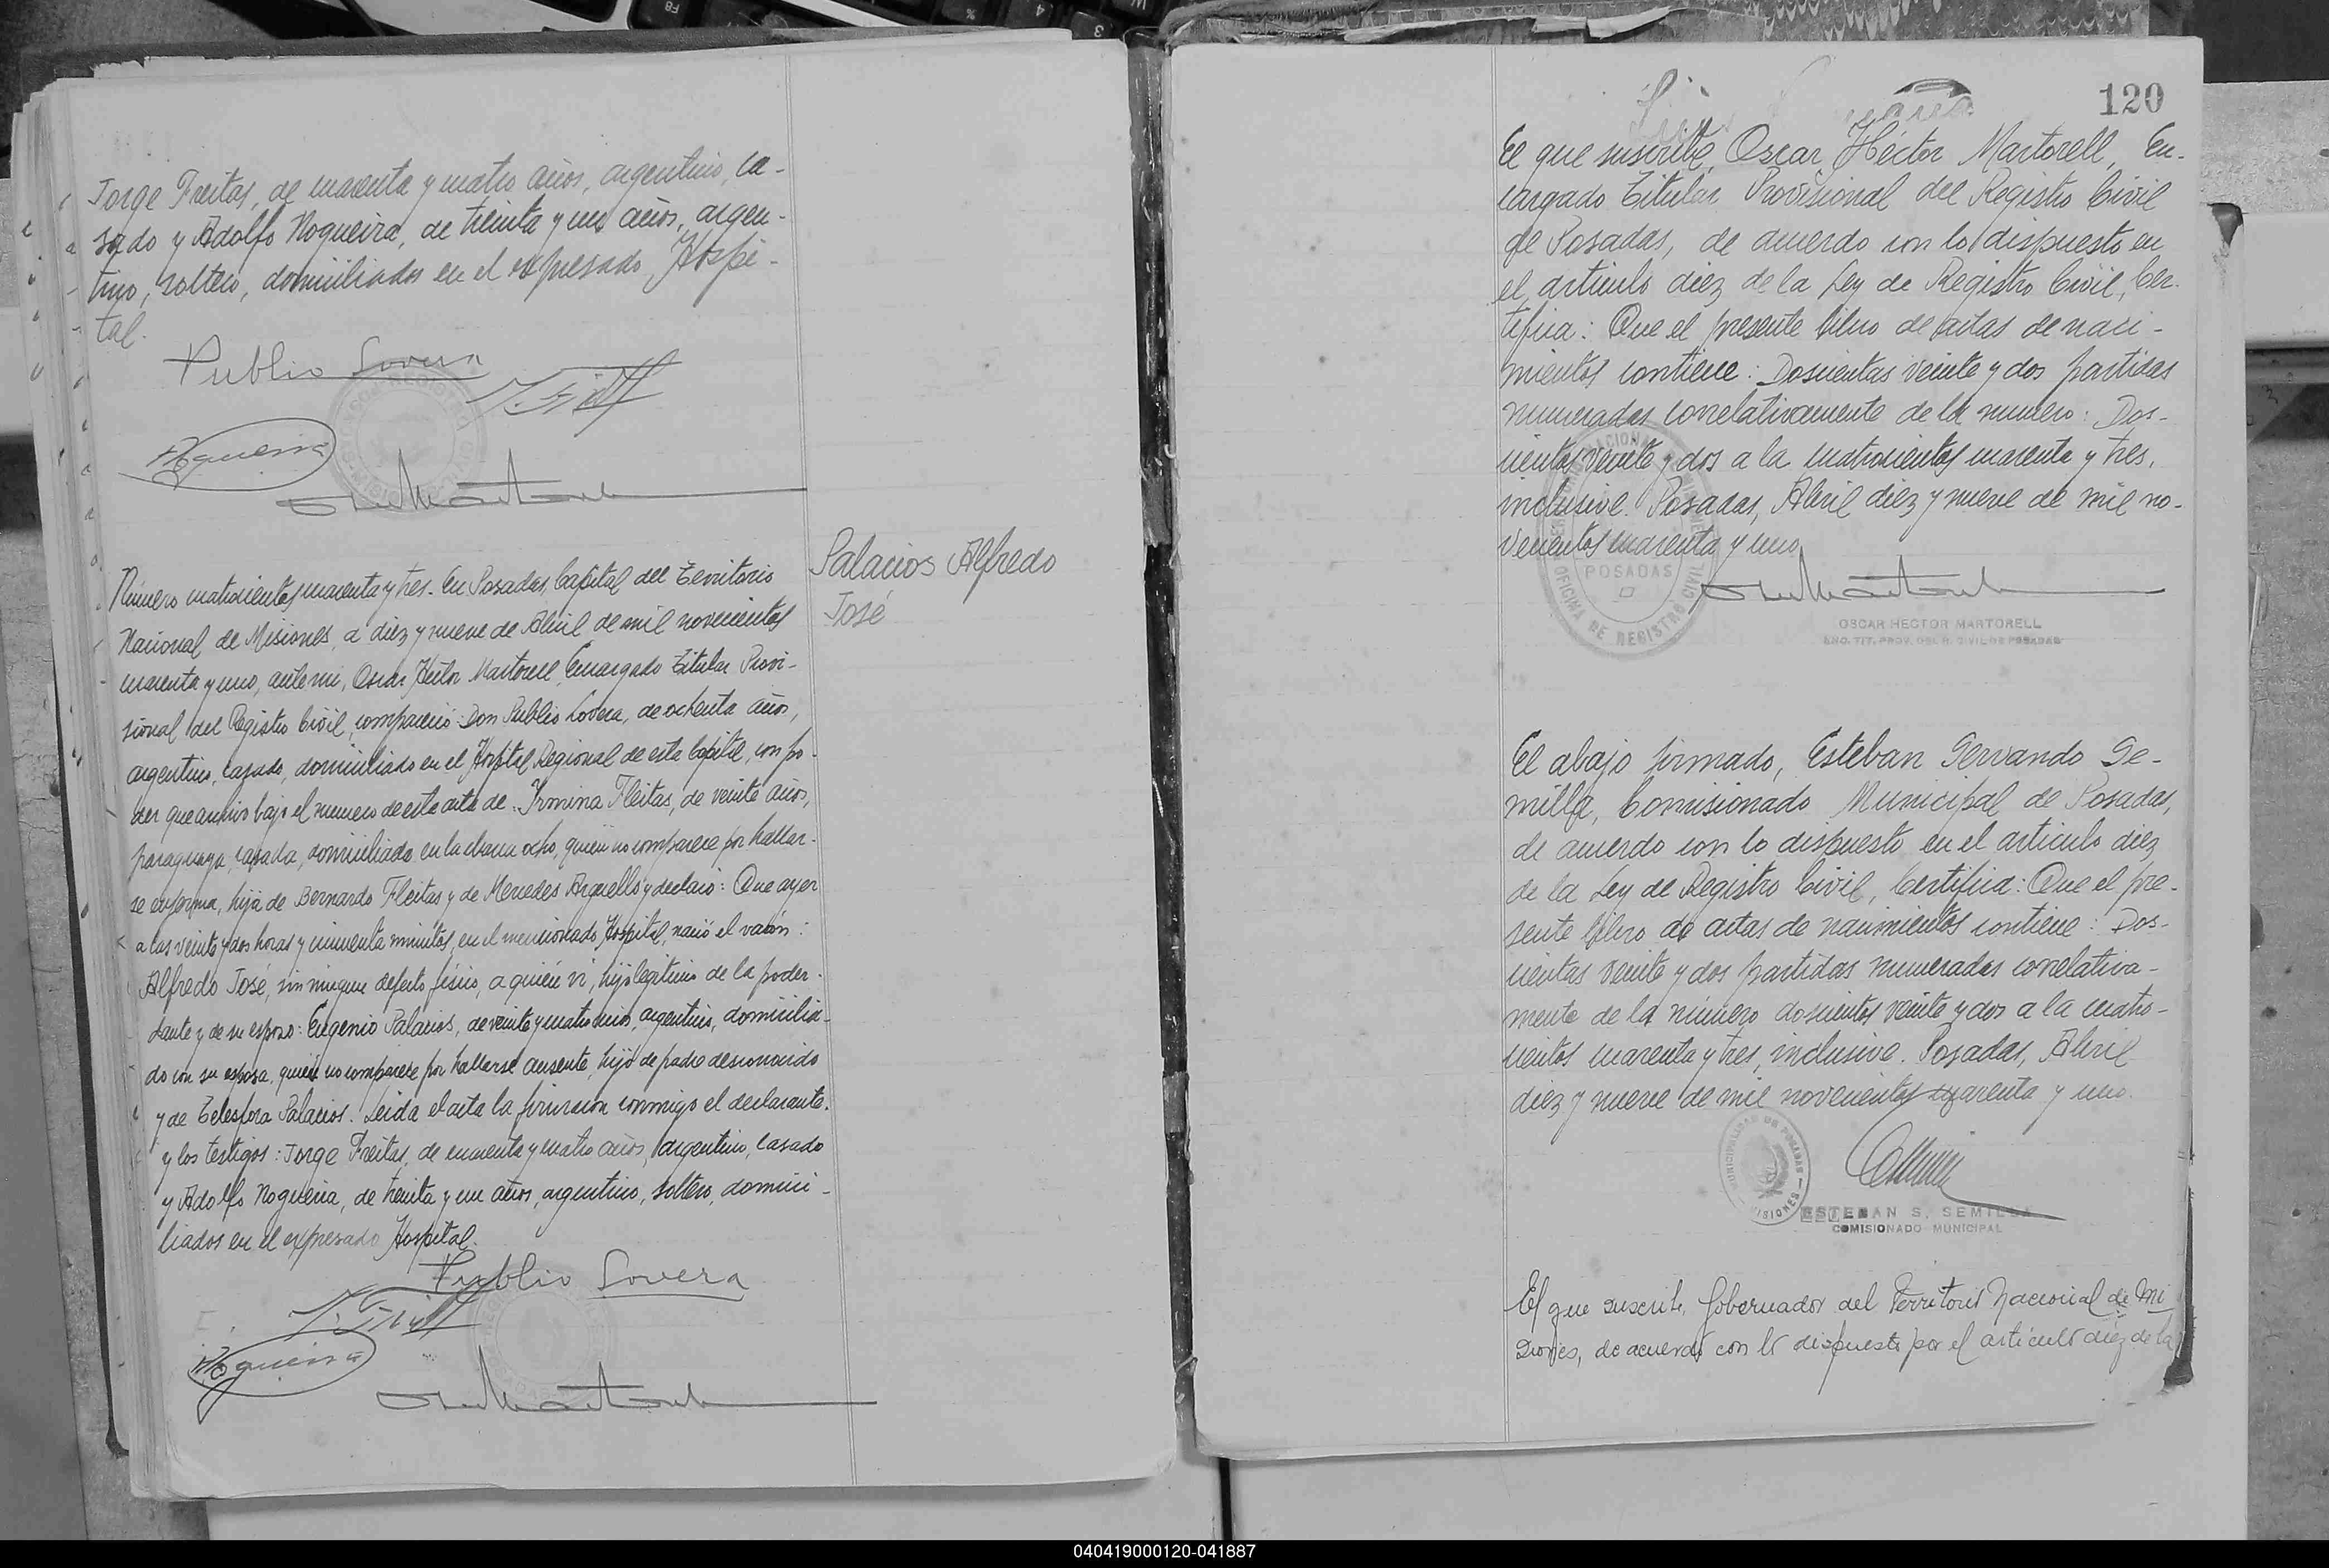 Jorge Freitas, de cuarenta y cuatro años, argentino, ca-
sado y Adolfo Nogueira, de treinta y un años, argen-
tino, soltero, domiciliados en el expresado, Hospi-
tal.
Publio Lovera
Nogueira
Palacios Alfredo
José
Número cuatrocientos cuarenta y tres. En Posadas, Capital del Territorio
Nacional de Misiones, a diez y nueve de Abril de mil novecientos
cuarenta y uno, ante mi, Oscar Héctor Martorell, Encargado Titular Provi-
sional del Registro Civil, compareció: Don Publio Lovera, de ochenta años,
argentino, casado, domiciliado en el Hospital Regional de esta Capital, con po-
der que archivo bajo el numero de este acta de: Irmina Fleitas, de veinte años,
paraguaya, casada, domiciliado en la chacra ocho, quien no comparece por hallar-
se enferma, hija de Bernardo Fleitas y de Mercedes Arguello y declaró: Que ayer
a las veinte y dos horas y cincuenta minutos, en el mencionado Hospital, nació el varón:
Alfredo José, sin ningun defecto fisico, a quién vi, hijo legitimo de la poder-
dante y de su esposo: Eugenio Palacios, de veinte y cuatro años, argentino, domicilia-
do con su esposa, quién no comparece por hallarse ausente, hijo de padre desconocido
y de Telesfora Palacios. Leida el acta la firmaron conmigo el declarante.
y los testigos: Jorge Freitas, de cuarenta y cuatro años, argentino, casado
y Adolfo Nogueira, de treinta y un años, argentino, soltero, domici-
liados en el expresado Hospital.
Publio Lovera
Nogueira
120
El que suscribe, Oscar Héctor Martorell, En-
cargado Titular Provisional del Registro Civil
de Posadas, de acuerdo con lo dispuesto en
el articulo diez de la Ley de Registro Civil, Cer-
tifica: Que el presente libro de actas de naci-
mientos contiene: Doscientas veinte y dos partidas
numeradas correlativamente de la numero: Dos-
cientos veinte y dos a la cuatrocientos cuarenta y tres,
inclusive. Posadas, Abril diez y nueve de mil no-
vecientos cuarenta y uno.
POSADAS
OFICINA DE REGISTRO CIVIL
OSCAR HECTOR MARTORELL
ENC. TIT. PROV. DEL R. CIVIL DE POSADAS
El abajo firmado, Esteban Servando Se-
milla, Comisionado Municipal de Posadas,
de acuerdo con lo dispuesto en el articulo diez
de la Ley de Registro Civil, Certifica: Que el pre-
sente libro de actas de nacimientos contiene: Dos-
cientas veinte y dos partidas numeradas correlativa-
mente de la número doscientos veinte y dos a la cuatro-
cientos cuarenta y tres, inclusive. Posadas, Abril
diez y nueve de mil novecientos cuarenta y uno.
MUNICIPALIDAD DE POSADAS
MISIONES
ESTEBAN S. SEMILLA
COMISIONADO MUNICIPAL
El que suscribe, Gobernador del Territorio Nacional de Mi
siones, de acuerdo con lo dispuesto por el artículo diez de la
040419000120-041887